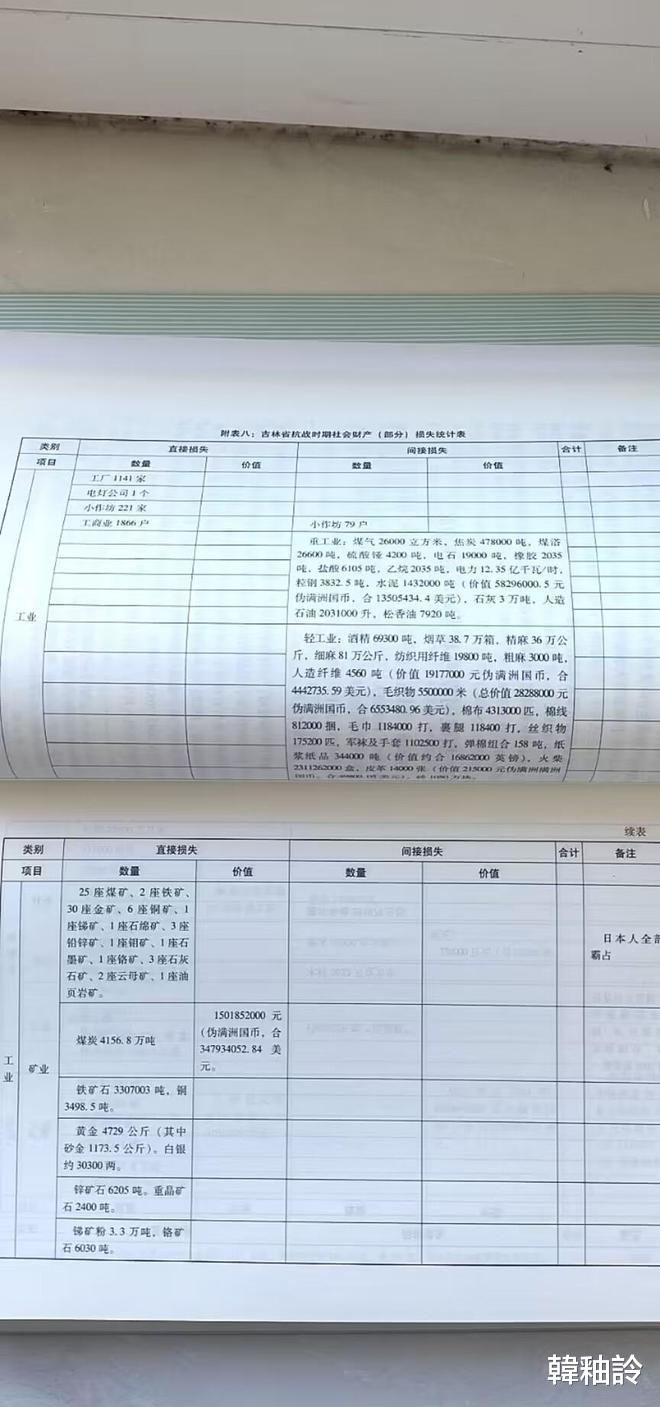 附表八：吉林省抗战时期社会财产（部分）损失统计表
类别 直接损失 间接损失 合计 备注
项目 数量 价值 数量 价值
工业
工厂 1141 家
电灯公司 1 个
小作坊 221 家
工商业 1866 户 小作坊 79 户
重工业：煤气 26000 立方米，焦炭 478000 吨，煤溚
26600 吨，硫酸铔 4200 吨，电石 19000 吨，橡胶 2035
吨，盐酸 6105 吨，乙烷 2035 吨，电力 12.35 亿千瓦/时，
粒钢 3832.5 吨，水泥 1432000 吨（价值 58296000.5 元
伪满洲国币，合 13505434.4 美元），石灰 3 万吨，人造
石油 2031000 升，松香油 7920 吨。
轻工业：酒精 69300 吨，烟草 38.7 万箱，精麻 36 万公
斤，细麻 81 万公斤，纺织用纤维 19800 吨，粗麻 3000 吨，
人造纤维 4560 吨（价值 19177000 元伪满洲国币，合
4442735.59 美元），毛织物 5500000 米（总价值 28288000 元
伪满洲国币，合 6553480.96 美元），棉布 4313000 匹，棉线
812000 捆，毛巾 1184000 打，裹腿 118400 打，丝织物
175200 匹，军袜及手套 1102500 打，弹棉组合 158 吨，纸
浆纸品 344000 吨（价值约合 16862000 英镑），火柴
2311262000 盒，皮革 14000 张（价值 215000 元伪满洲
续表
类别 直接损失 间接损失 合计 备注
项目 数量 价值 数量 价值
工业
矿业
25 座煤矿、2 座铁矿、
30 座金矿、6 座铜矿、1
座锑矿、1 座石绵矿、3 座
铅锌矿、1 座钼矿、1 座石
墨矿、1 座铬矿、3 座石灰
石矿、2 座云母矿、1 座油
页岩矿。
日本人全部
霸占
煤炭 4156.8 万吨
1501852000 元
（伪满洲国币，合
347934052.84 美
元。
铁矿石 3307003 吨，铜
3498.5 吨。
黄金 4729 公斤（其中
砂金 1173.5 公斤）。白银
约 30300 两。
锌矿石 6205 吨。重晶矿
石 2400 吨。
锑矿粉 3.3 万吨，铬矿
石 6030 吨。
韓釉詅